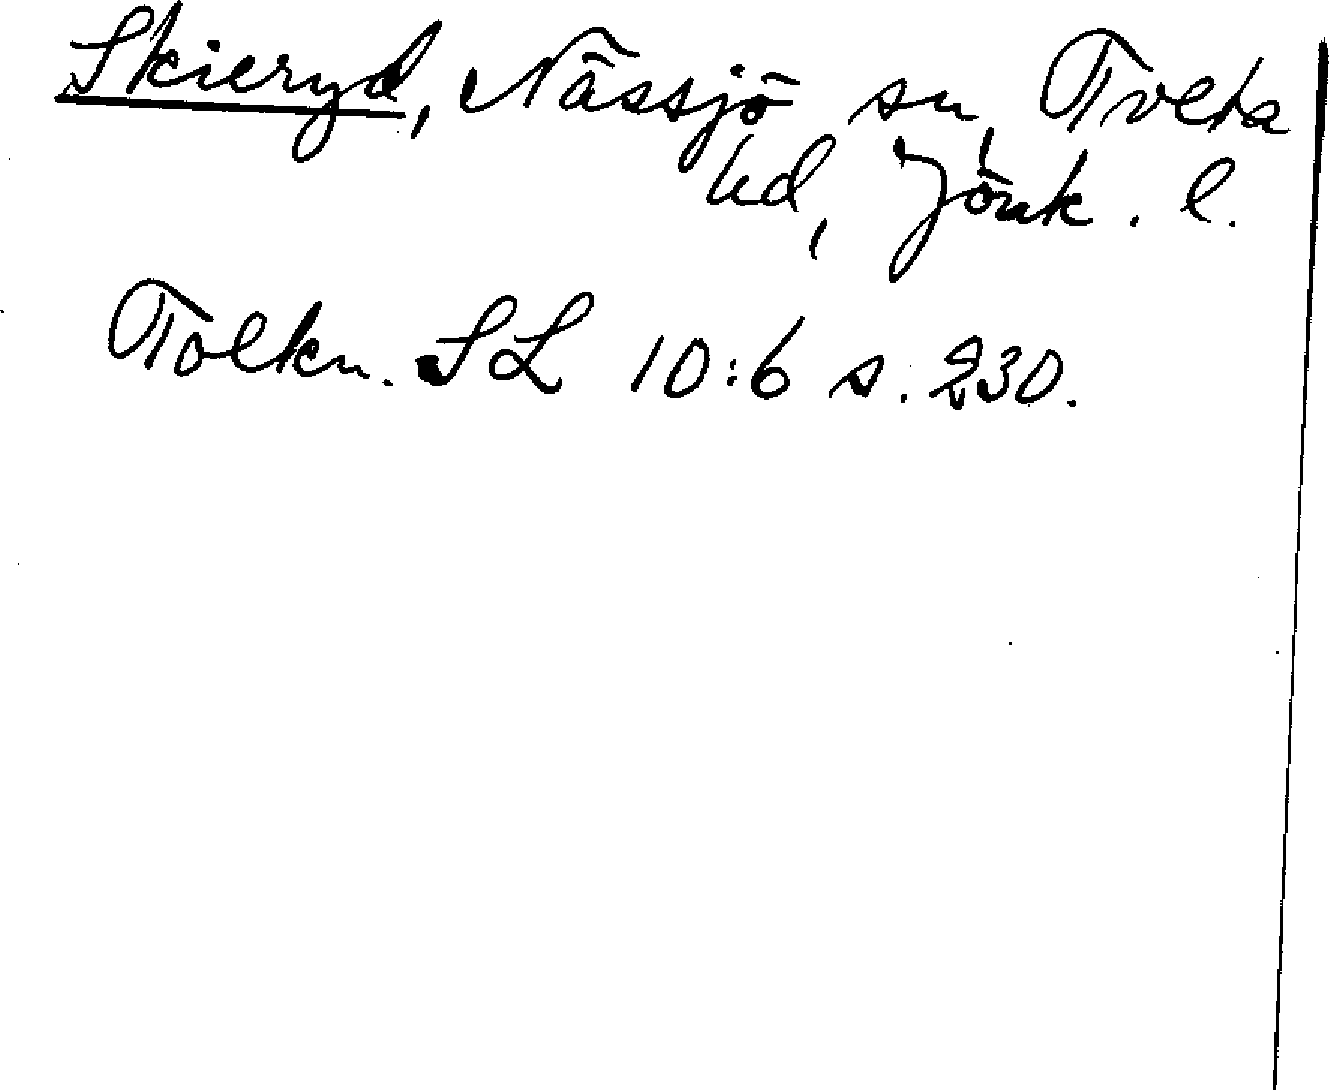 Skieryd, Nässjö sn, Tveta
hd, Jönk. l.
Tolkn. SL 10:6 s. 230.